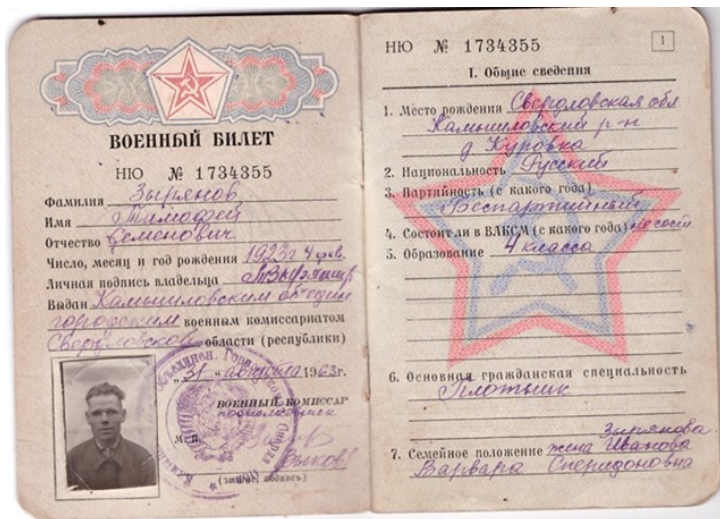 ВОЕННЫЙ БИЛЕТ
НЮ № 1734355
Фамилия Зырянов
Имя Тимофей
Отчество Семенович
Число, месяц и год рождения 1923г 4 фев.
Личная подпись владельца
Выдан Камышловским об"един
городским военным комиссариатом
Свердловской области (республики)
„31“ августа 1963г.
ВОЕННЫЙ КОМИССАР
подполковник
М. П.
Быков
(звание, подпись)
НЮ № 1734355
1
I. Общие сведения
1. Место рождения Свердловская обл
Камышловский р-н
д Куровка
2. Национальность Русский
3. Партийность (с какого года)
Беспартийный
4. Состоит ли в ВЛКСМ (с какого года) не сост.
5. Образование 4 класса
6. Основная гражданская специальность
Плотник
Зырянова
7. Семейное положение жена Иванова
Варвара Спиридоновна